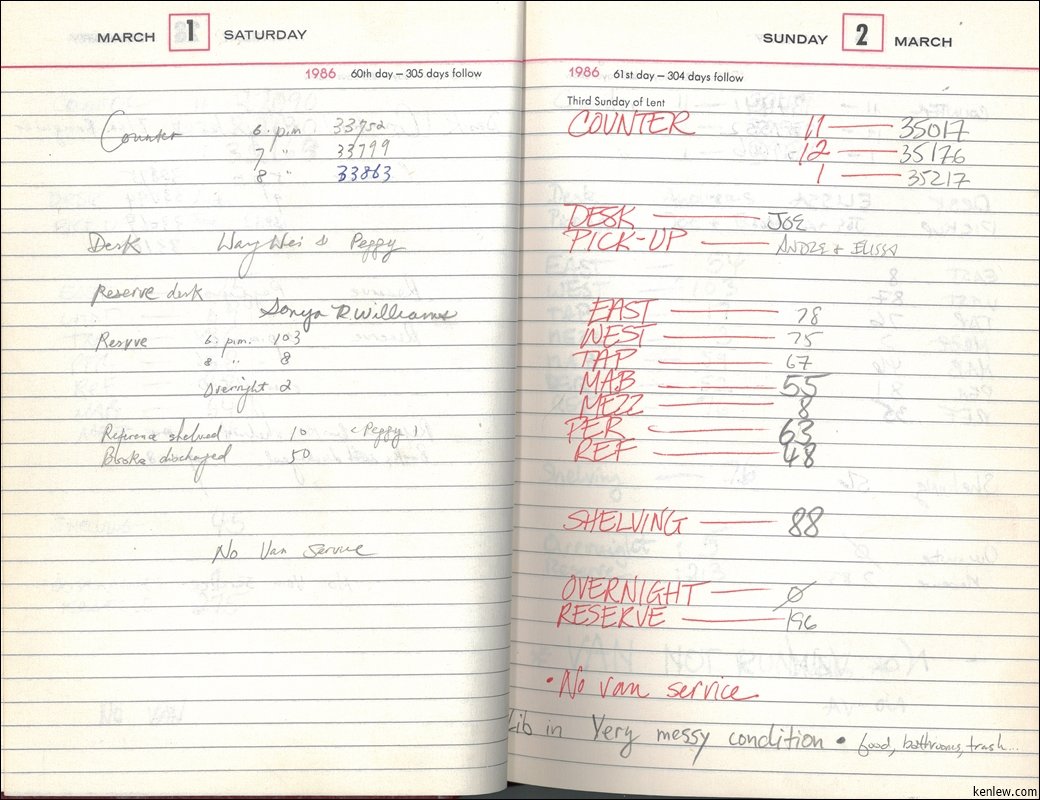 MARCH 1 SATURDAY
1986 60th day – 305 days follow
Counter 6. p.m 33752
7 " 33799
8 " 33863
Desk Way Wei & Peggy
Reserve desk
Sonya R. Williams
Reserve 6. p.m. 103
8 " 8
Overnight 2
Reference shelved 10 (Peggy)
Books discharged 50
No Van Service
SUNDAY 2 MARCH
1986 61st day – 304 days follow
Third Sunday of Lent
COUNTER 11 — 35017
12 — 35176
1 — 35217
DESK — JOE
PICK-UP — ANDRE & ELISSA
EAST — 78
WEST — 75
TAP — 67
MAB — 55
MEZZ — 8
PER — 63
REF — 48
SHELVING — 88
OVERNIGHT — Ø
RESERVE — 196
• No van service
Lib in Very messy condition • food, bathrooms, trash...
kenlew.com